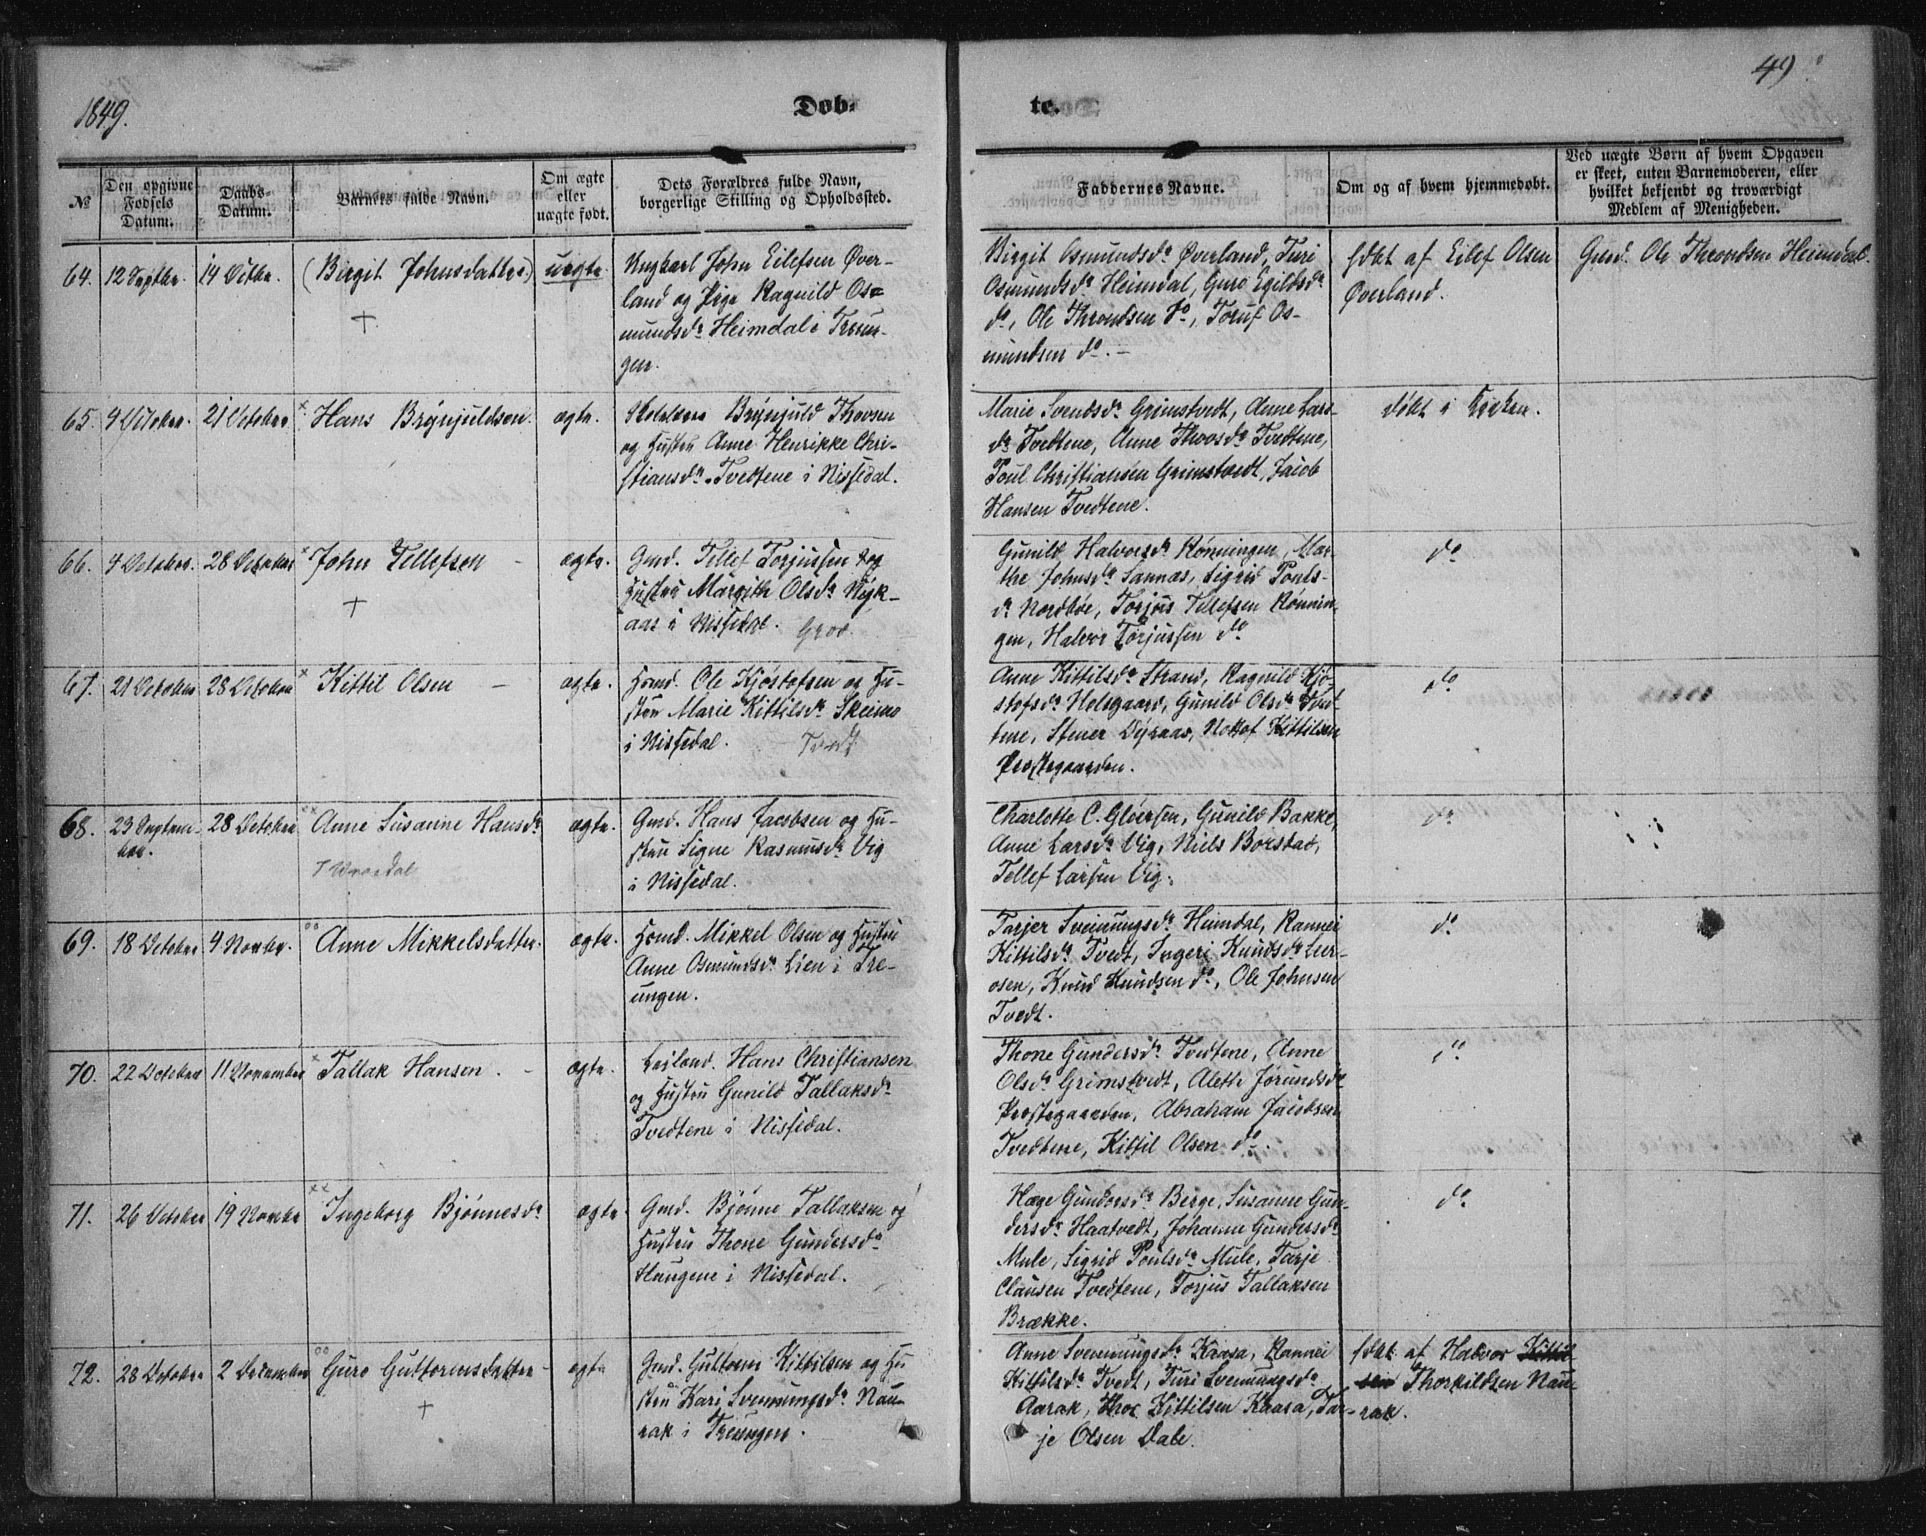 1849.
Døb-
te.
49
№
Den opgivne
Fødsels
Datum.
Daabs-
Datum.
Barnets fulde Navn.
Om ægte
eller
uægte født.
Dets Forældres fulde Navn,
borgerlige Stilling og Opholdssted.
Faddernes Navne.
Om og af hvem hjemmedøbt.
Ved uægte Børn af hvem Opgaven
er skeet, enten Barnemoderen, eller
hvilket bekjendt og troværdigt
Medlem af Menigheden.
64. 12 Septbr. 14 Octbr. (Birgit Johnsdatter) uægte.
Ungkarl John Eilefsen Øver-
land og Pige Ragnild Os-
mundsdr Heimdal i Treun-
gen.
Birgit Osmundsdr Øverland, Turi
Osmundsdr Heimdal, Guro Egildsdr
do, Ole Throndsen do, Toruf Os-
mundsen do. –
døbt af Eilef Olsen
Øverland.
Gmd. Ole Throndsen Heimdal.
65. 4 October. 21 October × Hans Brynjuldsen. ægte.
Brynjuld Thovsen
og Hustru Anne Henrikke Chri-
stiansdr Tvedtene i Nissedal.
Marie Svendsdr Grimstvedt, Anne Lars-
dr Tvedtene, Anne Thovsdr Tvedtene,
Poul Christiansen Grimstvedt, Jacob
Hansen Tvedtene.
døbt i Kirken.
66. 4 October. 28 October × John Tellefsen – ægte.
Gmd. Tellef Torjussen og
Hustru Margith Olsdr Nyk-
aas i Nissedal. Grov.
Gunild Halvorsdr Rønningen, Mar-
the Johnsdr Sannæs, Sigrid Pouls-
dr Nordbøe, Torjus Tellefsen Rønnin-
gen, Halvor Torjussen do
do
67. 21 October 28 October × Kittil Olsen – ægte.
Hsmd. Ole Kjøstofsen og Hu-
stru Marie Kittilsdr Skeimo
i Nissedal. – Tvedt
Anne Kittilsdr Strand, Ragnild Kjø-
stofsdr Holsgaard, Gunild Olsdr Tved-
tene, Stener Dyraas, Nottof Kittilsen
Præstegaarden.
do
68. 23 Septem-
ber. 28 October ×× Anne Susanne Hansdr ægte.
Gmd. Hans Jacobsen og Hu-
stru Signe Rasmusdr Vig
i Nissedal.
Charlotte C. Gløersen, Gunild Bakke,
Anne Larsdr Vig, Niels Borstad,
Tellef Larsen Vig.
do
69. 18 October 4 Novbr. Anne Mikkelsdatter. ægte.
Hsmd. Mikkel Olsen og Hustru
Anne Osmundsdr Lien i Tre-
ungen.
Tarjer Sveinungsdr Heimdal, Rannei
Kittilsdr Tvedt, Ingeri Knudsdr Lur-
osen, Knud Knudsen do, Ole Johnsen
Tvedt.
do
70. 22 October 11 November × Tallak Hansen. – ægte.
Leiland. Hans Christiansen
og Hustru Gunild Tallaksdr
Tvedtene i Nissedal.
Thone Gundersdr Tvedtene, Anne
Olsdr Grimstvedt, Alette Jørundsdr
Præstegaarden, Abraham Jacobsen
Tvedtene, Kittil Olsen do.
do
71. 26 October 19 Novbr ×× Ingeborg Bjønnesdr ægte.
Gmd. Bjønne Tallaksen og
Hustru Thone Gundersdr
Haugene i Nissedal.
Hæge Gundersdr Berge, Susanne Gun-
dersdr Haatvedt, Johanne Gundersdr
Mule, Sigrid Poulsdr Mule, Tarje
Clausen Tvedtene, Torjus Tallaksen
Brække.
do
72. 28 October 2 December Guro Guttormsdatter – ægte
Gmd. Guttorm Kittilsen og Hu
stru Kari Sveinungsdr Nau-
rak i Treungen.
Anne Sveinungsdr Krasa, Rannei
Kittilsdr Tvedt, Turi Sveinungsdr
Aarak, Thor Kittilsen Kaasa, Tar-
je Olsen Dale.
døbt af Halvor Kittil
sen Thorkildsen Nau-
rak.